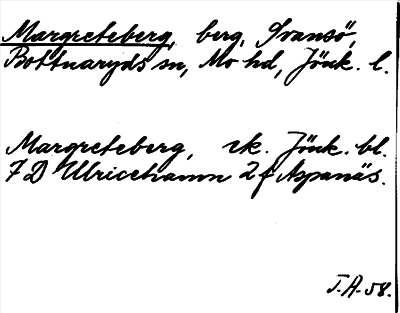 Margreteberg, berg, Svansö,
Bottnaryds sn, Mo hd, Jönk. l.
Margreteberg, rk. Jönk. bl.
7 D Ulricehamn 2 f Aspanäs.
J. A. 58.